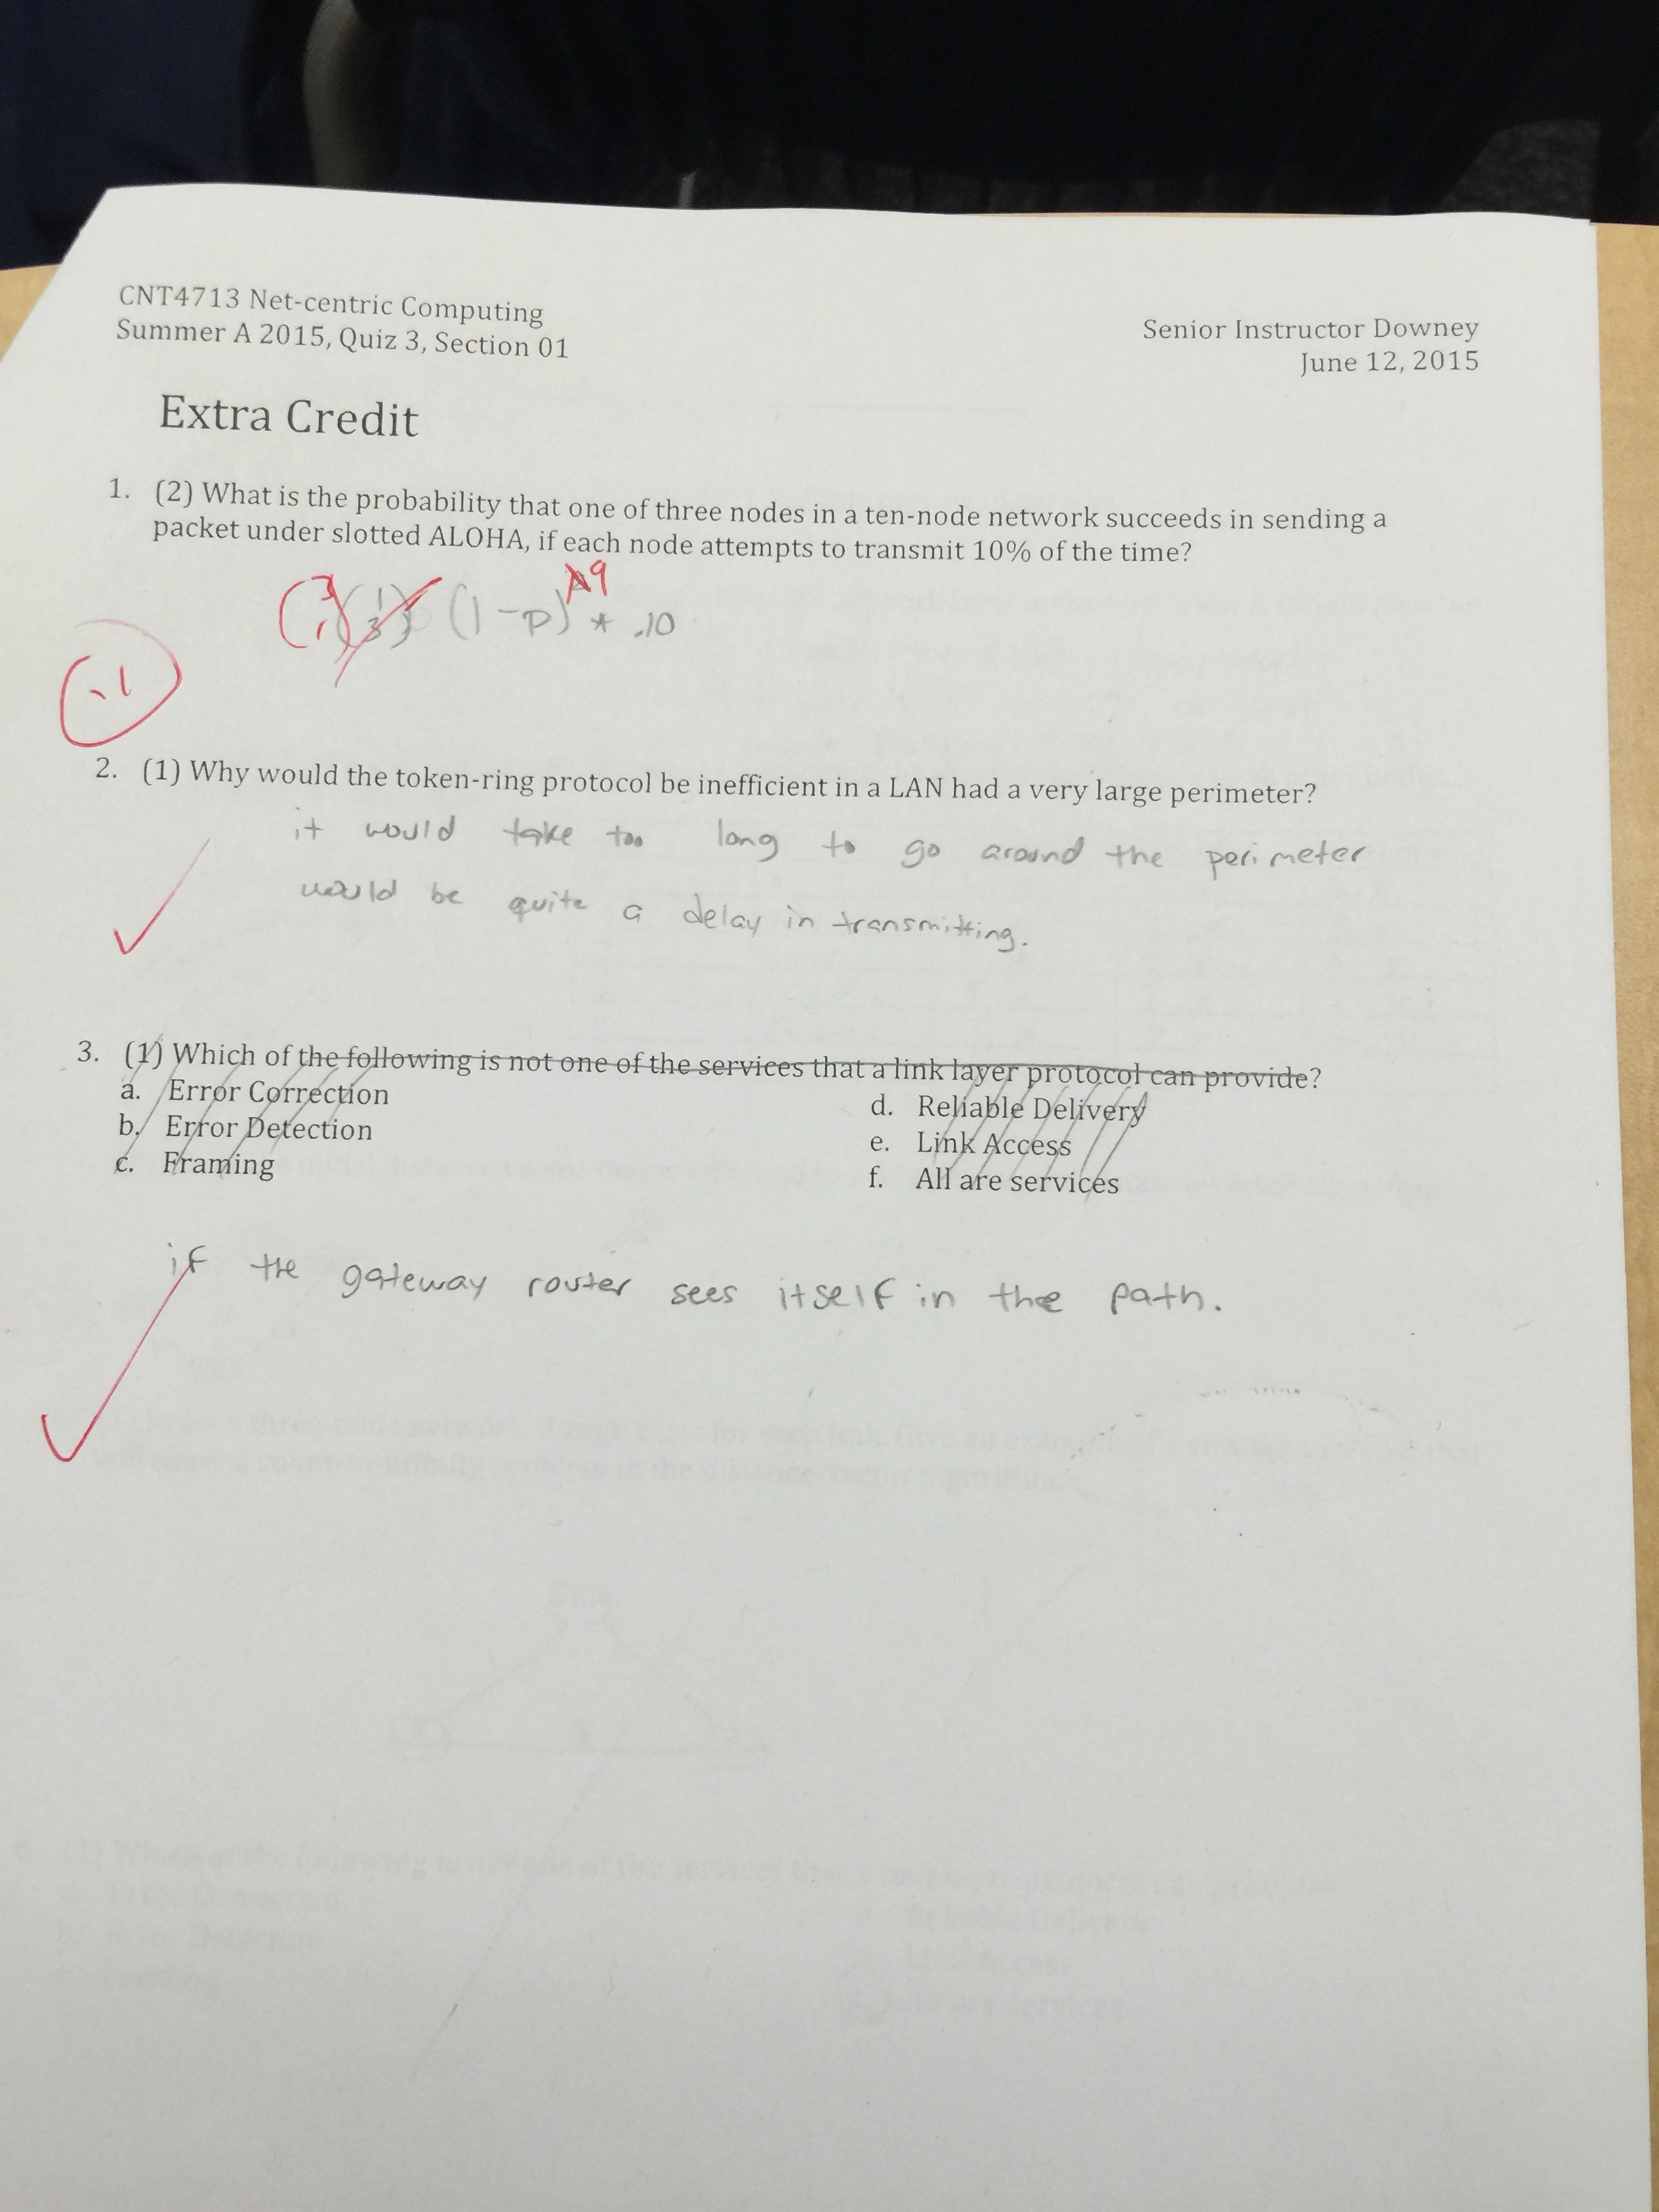 CNT4713 Net-centric Computing
Summer A 2015, Quiz 3, Section 01
Senior Instructor Downey
June 12, 2015
Extra Credit
1. (2) What is the probability that one of three nodes in a ten-node network succeeds in sending a
packet under slotted ALOHA, if each node attempts to transmit 10% of the time?
(3 1) (1 3) (1-p)^9 * .10
-1
2. (1) Why would the token-ring protocol be inefficient in a LAN had a very large perimeter?
it would take too long to go around the perimeter
would be quite a delay in transmitting.
3. (1) Which of the following is not one of the services that a link layer protocol can provide?
a. Error Correction
b. Error Detection
c. Framing
d. Reliable Delivery
e. Link Access
f. All are services
if the gateway router sees itself in the path.